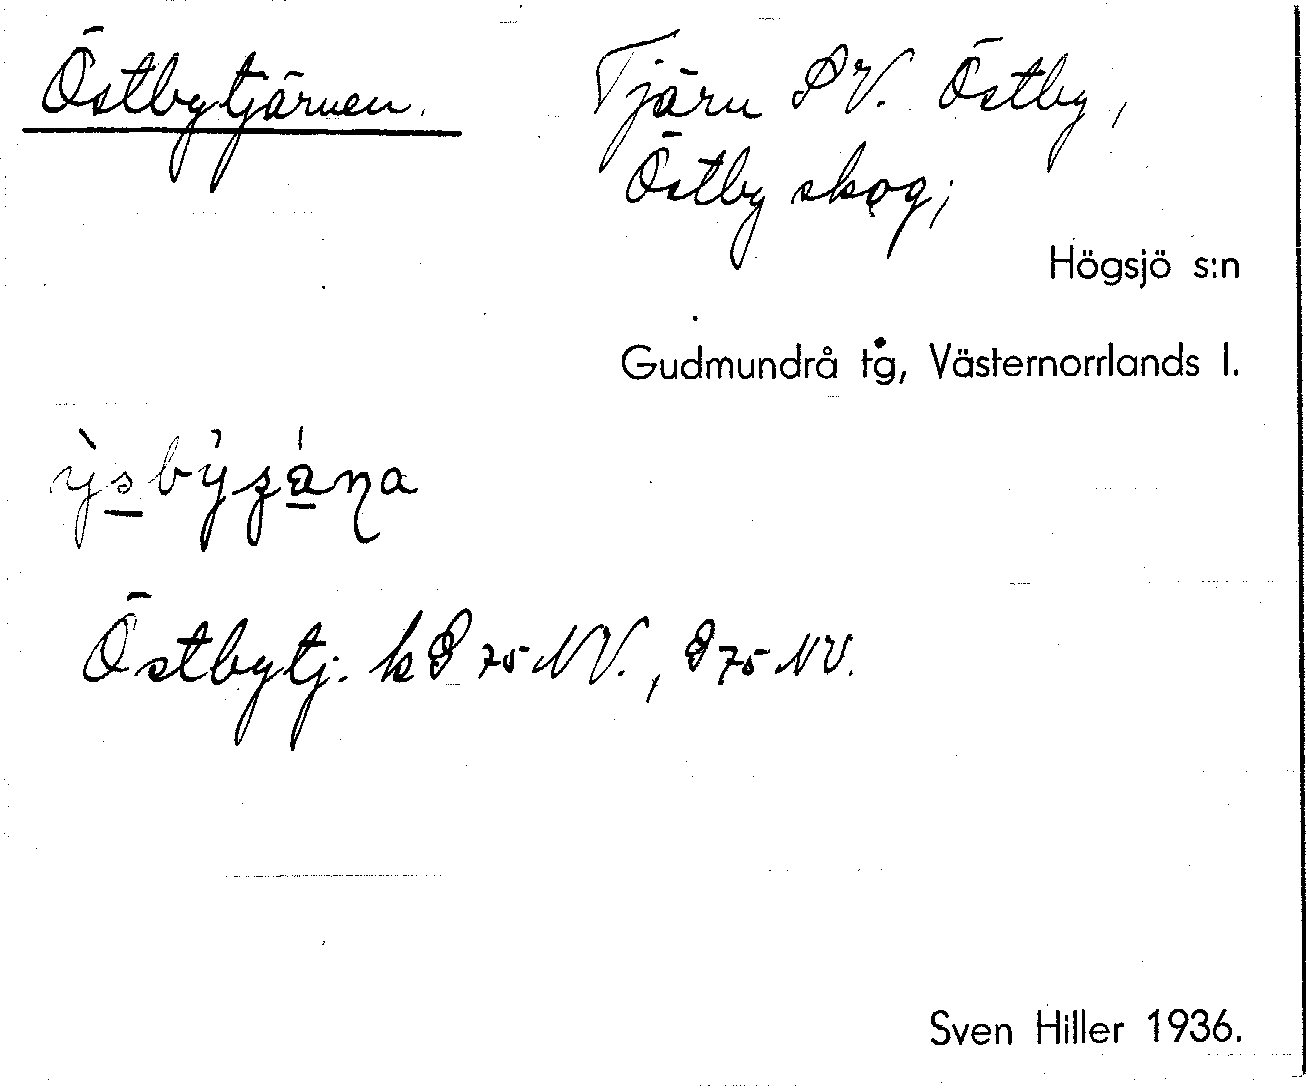 Östbytjärnen.
Tjärn SV. Östby,
Östby skog;
Högsjö s:n
Gudmundrå tg, Västernorrlands l.
Östbytj. kS 75 NV., S 75 NV.
Sven Hiller 1936.